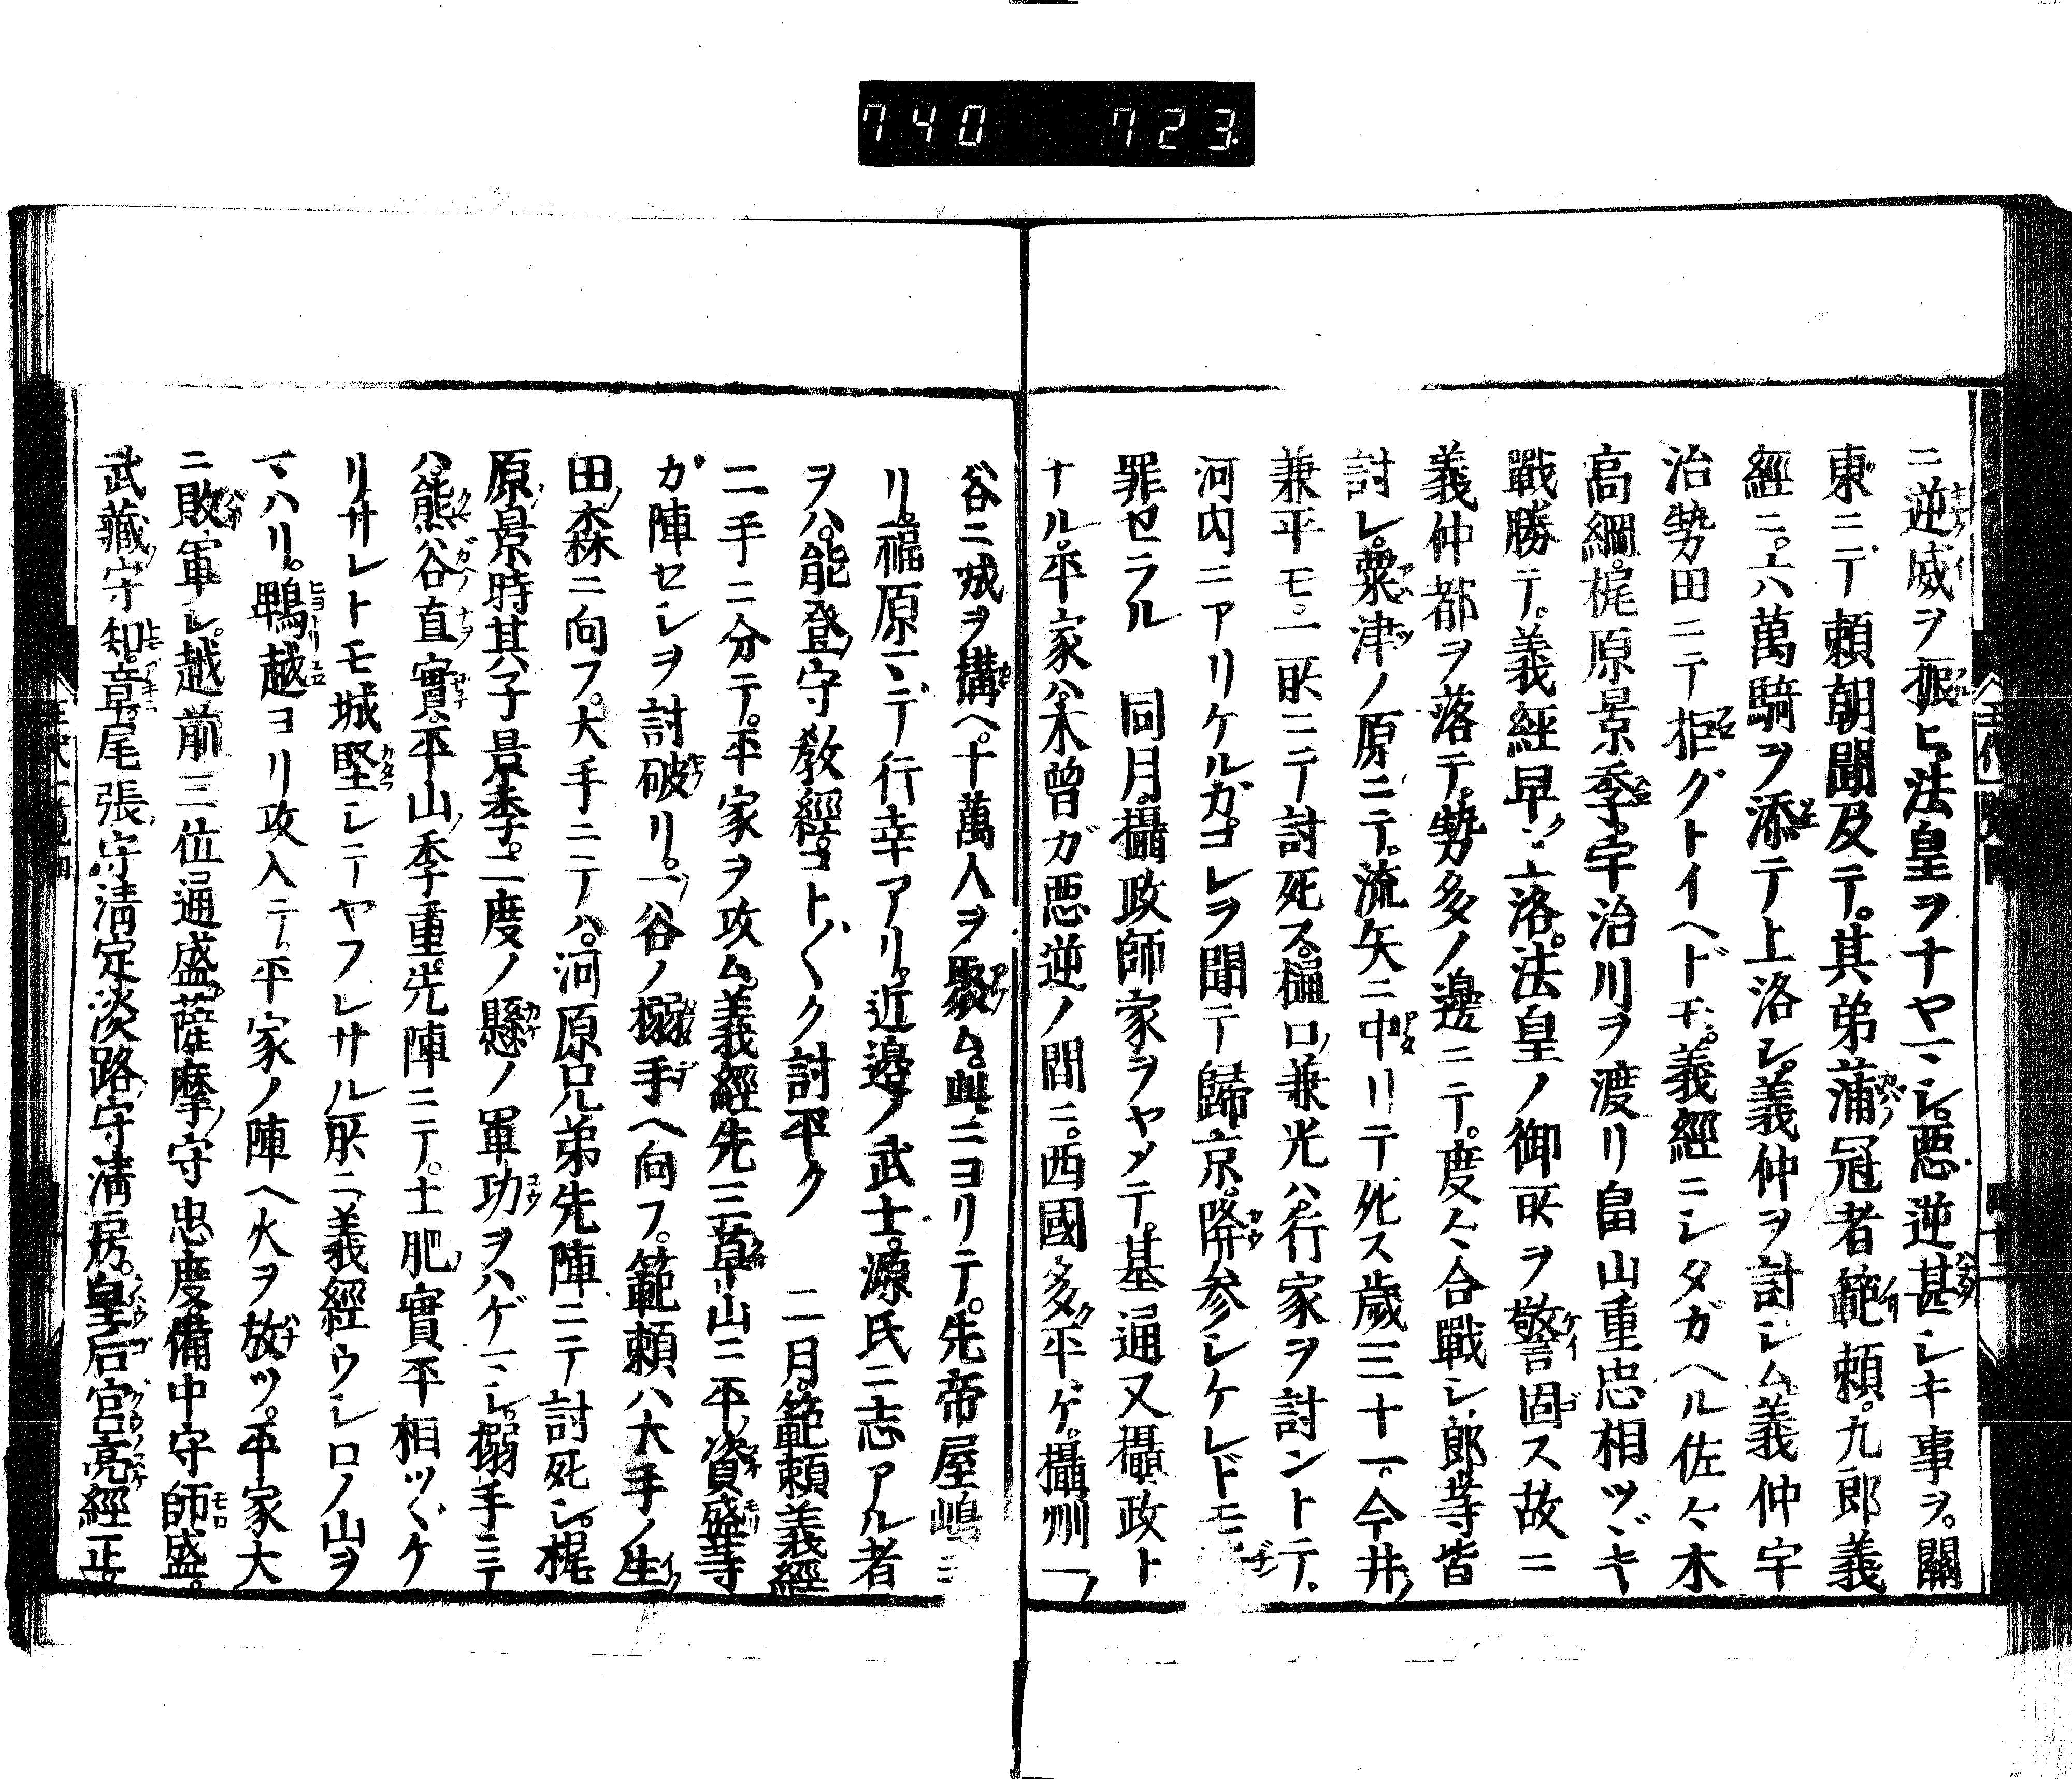 740 723
ニ逆威ヲ振ヒ。法皇ヲナヤマシ。悪逆甚シキ事ヲ。關
東ニテ頼朝聞及テ。其弟蒲冠者範頼。九郎義
經ニ。六萬騎ヲ添テ上洛シ。義仲ヲ討シム。義仲宇
治勢田ニテ拒グトイヘドモ。義經ニシタガヘル佐々木
高綱。梶原景季。宇治川ヲ渡リ畠山重忠相ツヾキ
戰勝テ。義經早ク上洛。法皇ノ御所ヲ警固ス故ニ
義仲都ヲ落テ。勢多ノ邊ニテ。度々合戰シ。郎等皆
討レ。粟津ノ原ニテ。流矢ニ中リテ死ス歳三十一。今井
兼平モ。一所ニテ討死ス。樋口兼光ハ。行家ヲ討ントテ。
河内ニアリケルガ。コレヲ聞テ歸京。降参シケレドモ。
罪セラル 同月。攝政師家ヲヤメテ。基通又攝政ト
ナル。平家ハ。木曾ガ悪逆ノ間ニ。西國多ク平ゲ。攝州一
谷ニ城ヲ構ヘ。十萬人ヲ聚ム。此ニヨリテ。先帝屋嶋ニ
リ。福原マデ行幸アリ。近邊ノ武士。源氏ニ志アル者
ヲハ。能登守教經。コト〴〵ク討平ク 二月。範頼義經
二手ニ分テ。平家ヲ攻ム。義經先三草山ニ平資盛等
ガ陣セシヲ討破リ。一谷ノ搦手ヘ向フ。範頼ハ大手ノ生
田森ニ向フ。大手ニテハ。河原兄弟先陣ニテ討死シ。梶
原景時其子景季。二度ノ懸ノ軍功ヲハゲマシ。搦手ニテ
ハ。熊谷直實。平山季重。先陣ニテ。土肥實平相ツヾケ
リサレトモ城堅シテヤフレサル所ニ。義經ウシロノ山ヲ
マハリ。鵯越ヨリ攻入テ。平家ノ陣ヘ火ヲ放ツ。平家大
ニ敗軍シ。越前三位通盛。薩摩守忠度。備中守師盛。
武藏守知章。尾張守淸定。淡路守淸房。皇后宮亮經正。